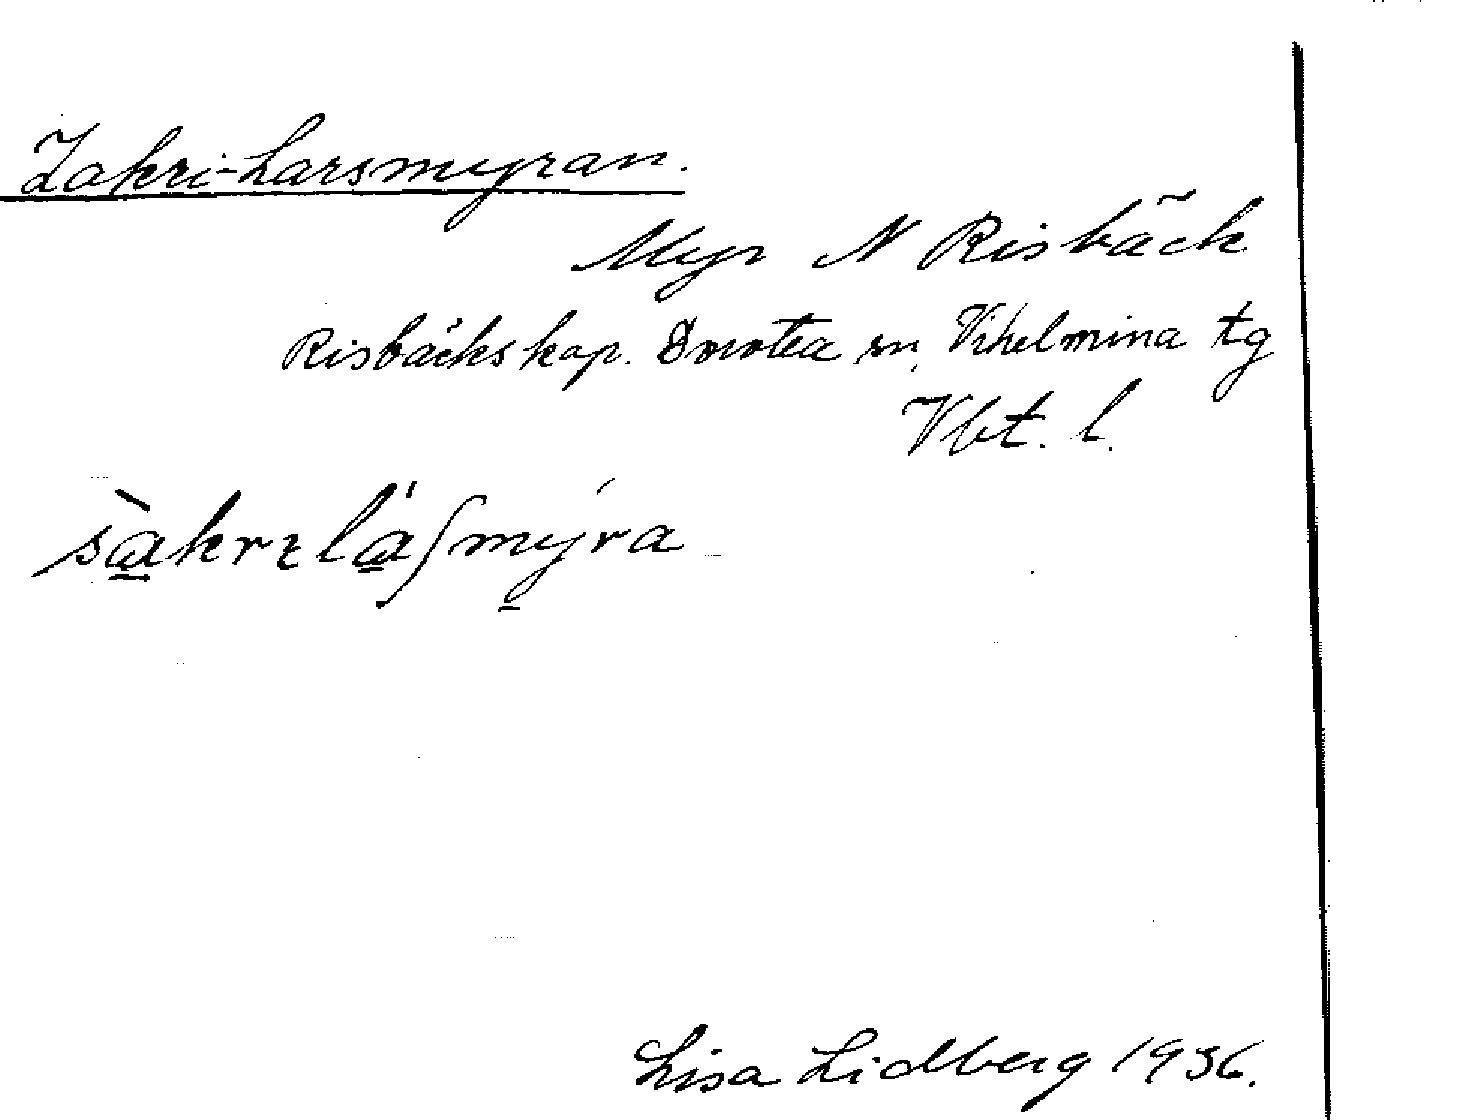 Zakri-Larsmyran.
Myr N Risbäck
Risbäcks kap. Dorotea sn, Vihelmina tg
Vbt. l.
sàkrɩláʃmýra
Lisa Lidberg 1936.